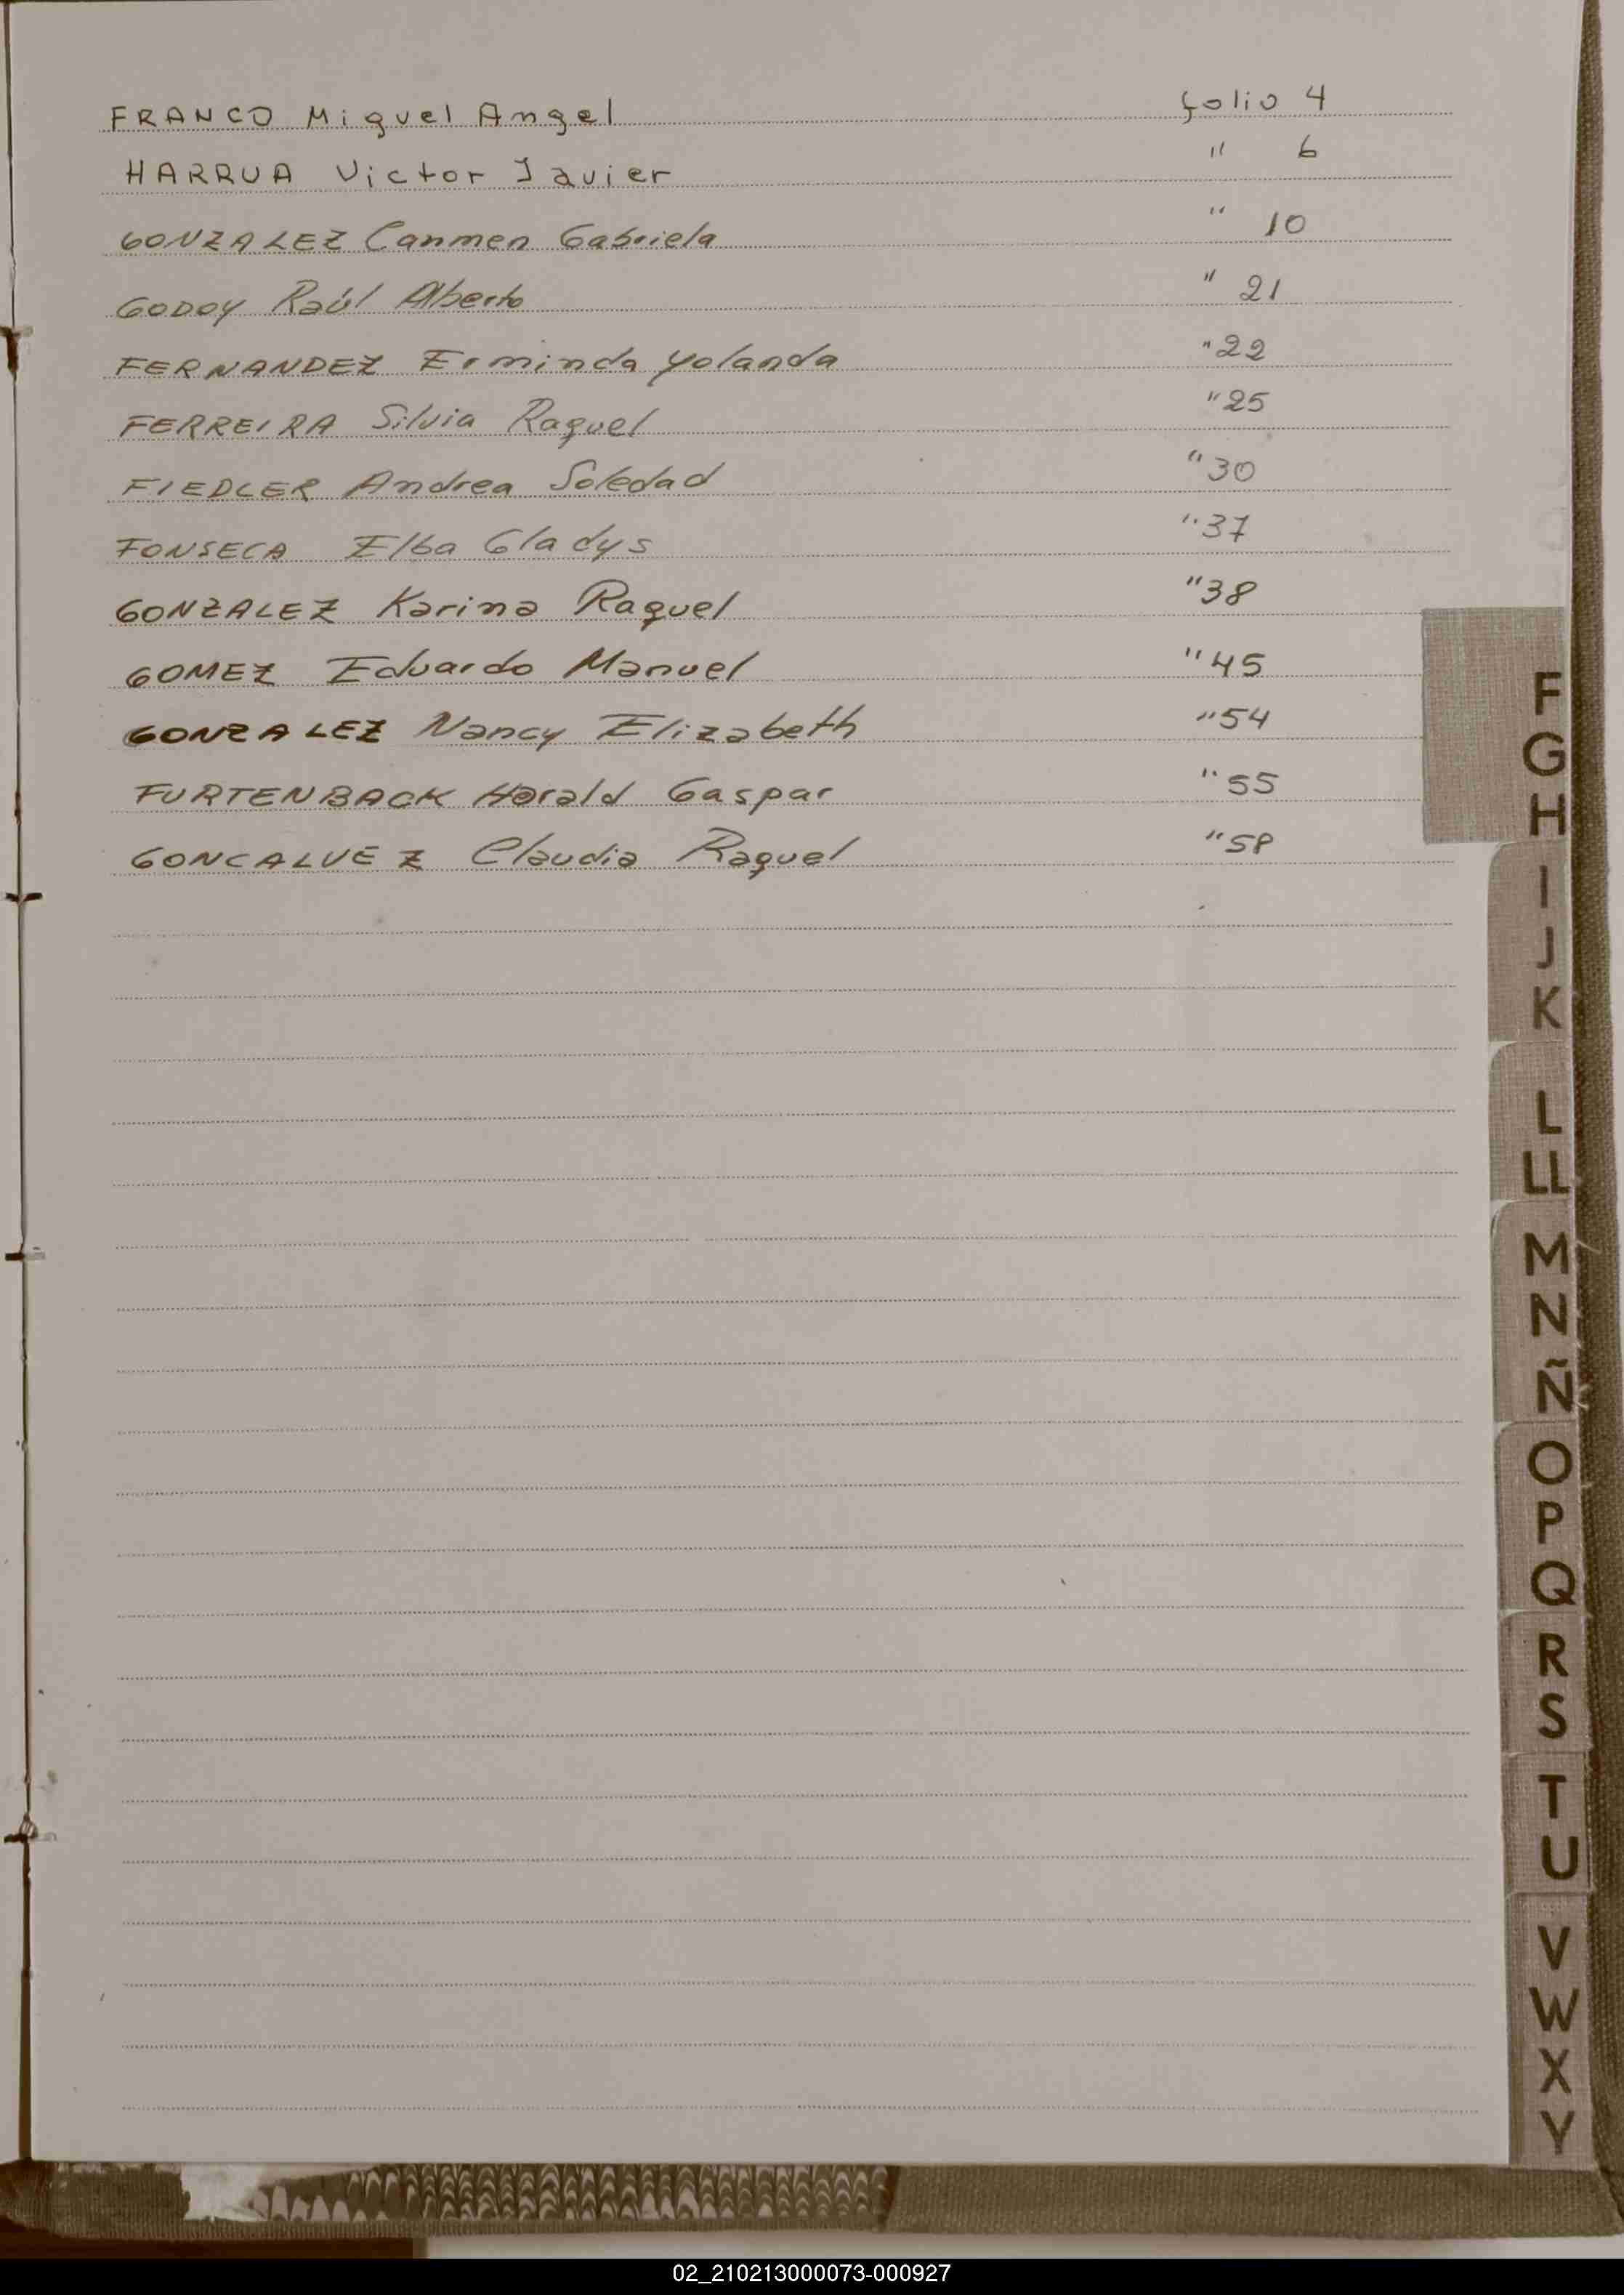 FRANCO Miguel Angel folio 4
HARRUA Victor Javier " 6
GONZALEZ Carmen Gabriela " 10
GODOY Raúl Alberto " 21
FERNANDEZ Erminda Yolanda " 22
FERREIRA Silvia Raquel " 25
FIEDLER Andrea Soledad " 30
FONSECA Elba Gladys " 37
GONZALEZ Karina Raquel " 38
GOMEZ Eduardo Manuel " 45
GONZALEZ Nancy Elizabeth " 54
FURTENBACK Harald Gaspar " 55
GONCALVEZ Claudia Raquel " 58
F
G
H
I
J
K
L
LL
M
N
Ñ
O
P
Q
R
S
T
U
V
W
X
Y
02_210213000073-000927